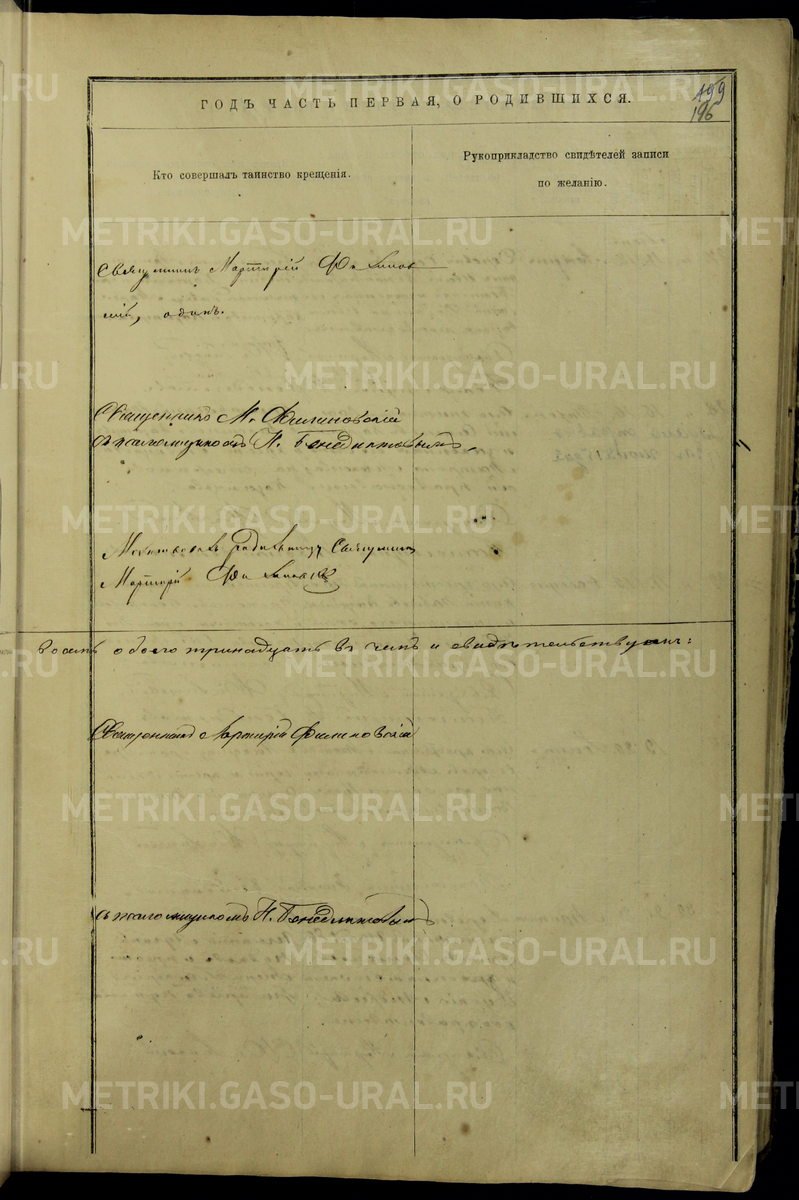 ГОДЪ ЧАСТЬ ПЕРВАЯ, О РОДИВШИХСЯ.
199
196
Кто совершалъ таинство крещенія.
Рукоприкладство свидѣтелей записи
по желанію.
Священникъ Мартирій Филинов
скій, одинъ.
Священникъ М. Филиновскій
съ псаломщикомъ Н. Бенедиктовымъ
Молитвовалъ родильницу Священникъ
Мартирій Филиновскій
обоего тринадцать въ чемъ и свидѣтельствуемъ:
Священникъ Мартирій Филиновскій
съ псаломщикомъ Н. Бенедиктовымъ
METRIKI.GASO-URAL.RU